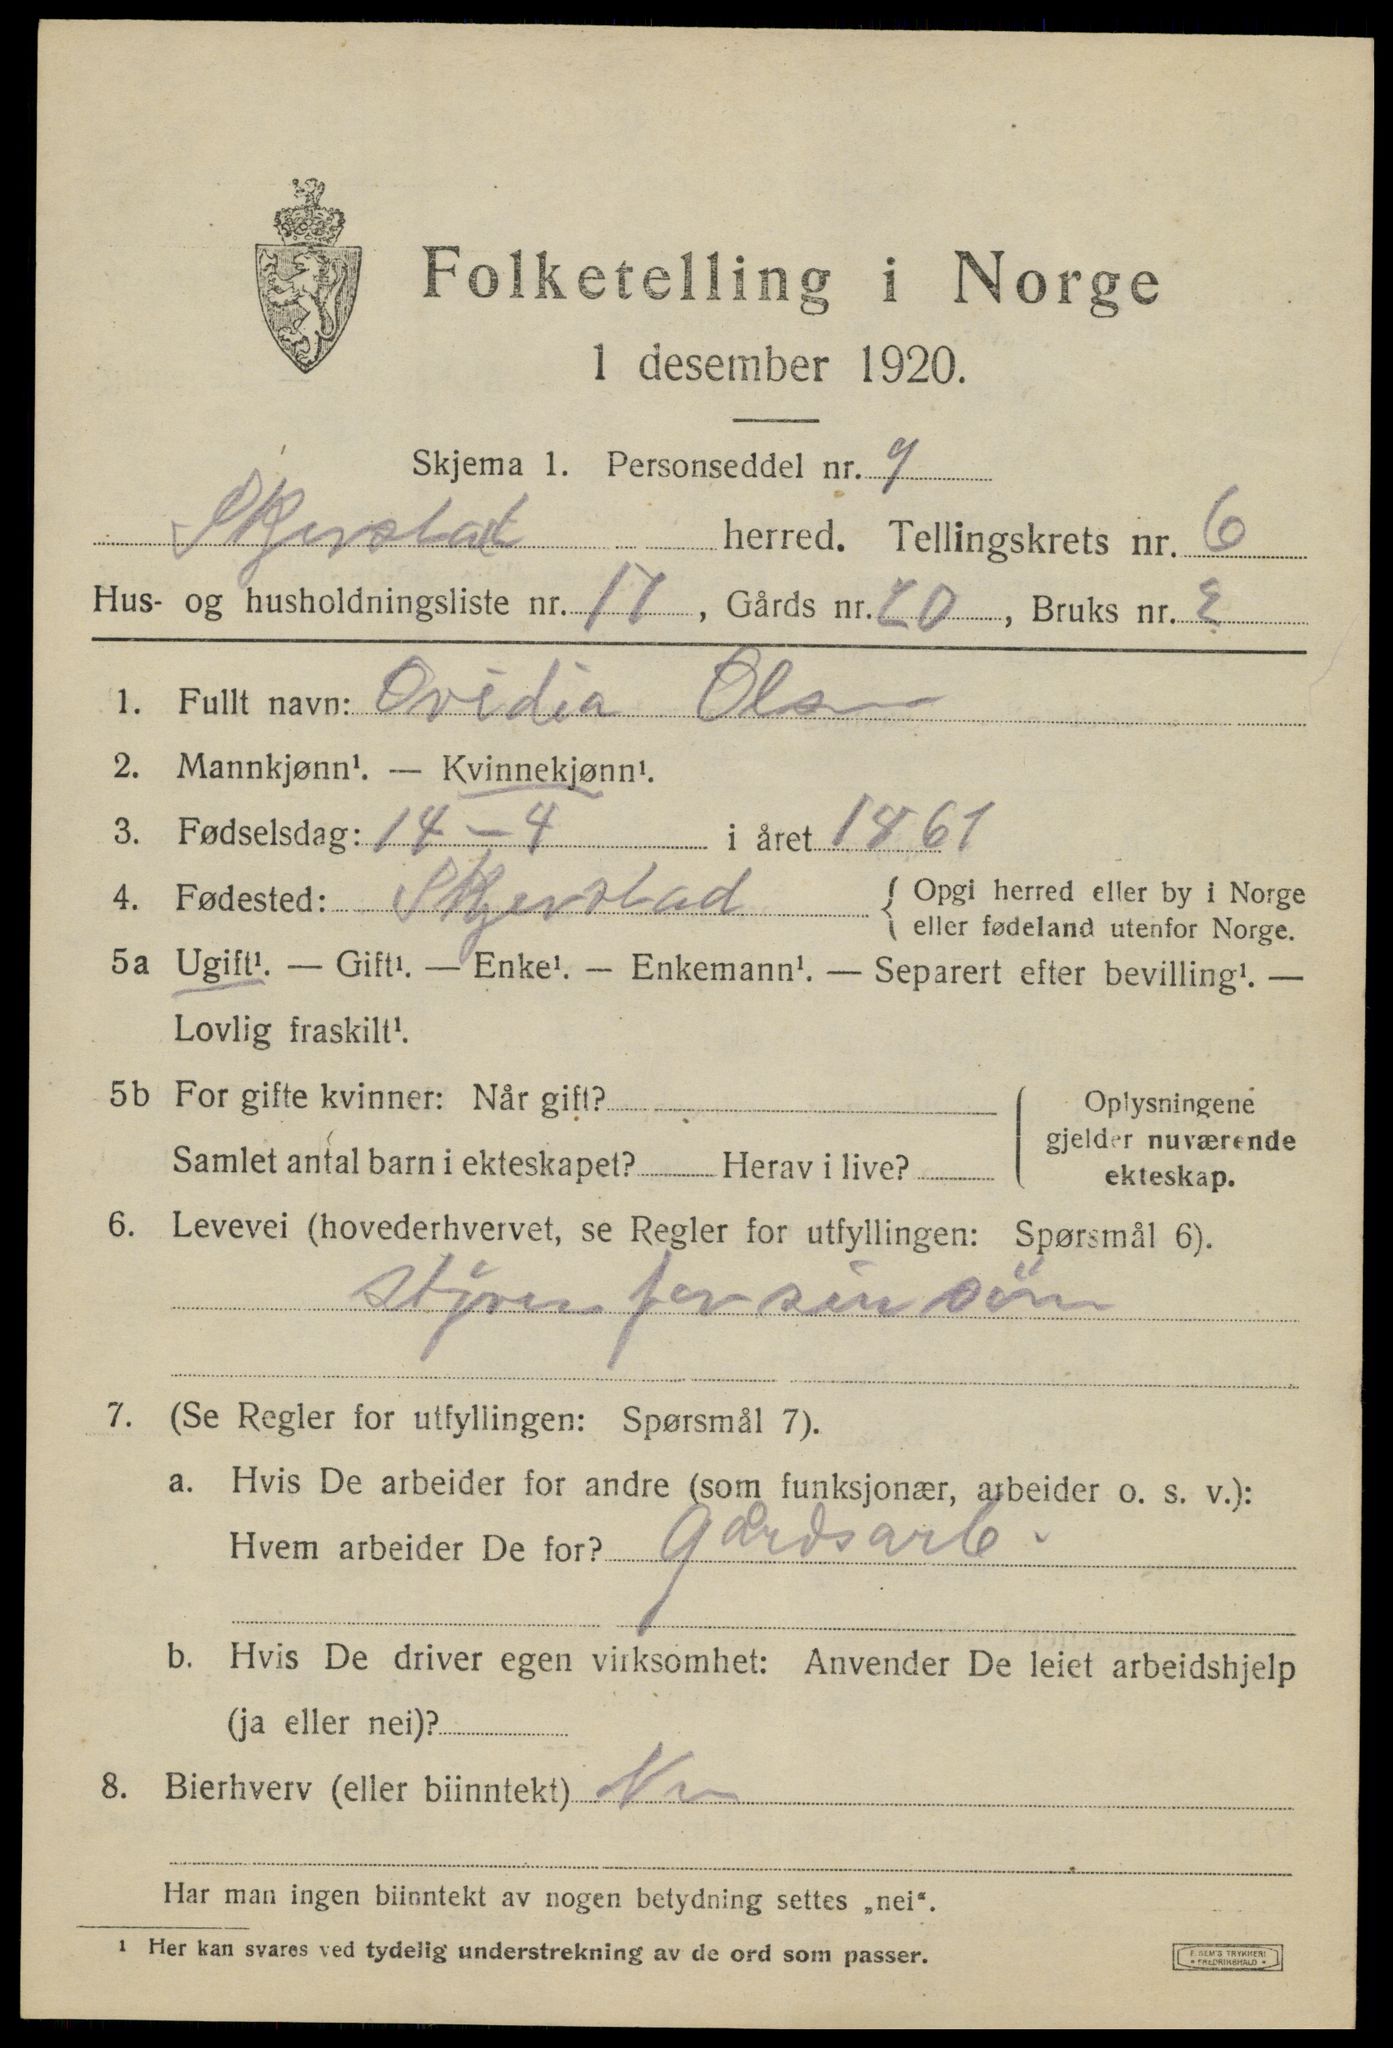 Folketelling i Norge
1 desember 1920.
Skjema 1. Personseddel nr. 9
Skjerstad herred. Tellingskrets nr. 6
Hus- og husholdningsliste nr. 17, Gårds nr. 20, Bruks nr. 2
1. Fullt navn: Ovidia Olsen
2. Mannkjønn¹. — Kvinnekjønn¹.
3. Fødselsdag: 14 - 4 i året 1861
4. Fødested: Skjerstad { Opgi herred eller by i Norge
eller fødeland utenfor Norge.
5a Ugift¹. — Gift¹. — Enke¹. — Enkemann¹. — Separert efter bevilling¹. —
Lovlig fraskilt¹.
5b For gifte kvinner: Når gift?
Samlet antal barn i ekteskapet? Herav i live?
Oplysningene
gjelder nuværende
ekteskap.
6. Levevei (hovederhvervet, se Regler for utfyllingen: Spørsmål 6).
styrer for sin sön
7. (Se Regler for utfyllingen: Spørsmål 7).
a. Hvis De arbeider for andre (som funksjonær, arbeider o. s. v.):
Hvem arbeider De for? Gårdsarb.
b. Hvis De driver egen virksomhet: Anvender De leiet arbeidshjelp
(ja eller nei)?
8. Bierhverv (eller biinntekt) Nei
Har man ingen biinntekt av nogen betydning settes „nei“.
¹ Her kan svares ved tydelig understrekning av de ord som passer.
E. SEM'S TRYKKERI
* FREDRIKSHALD *